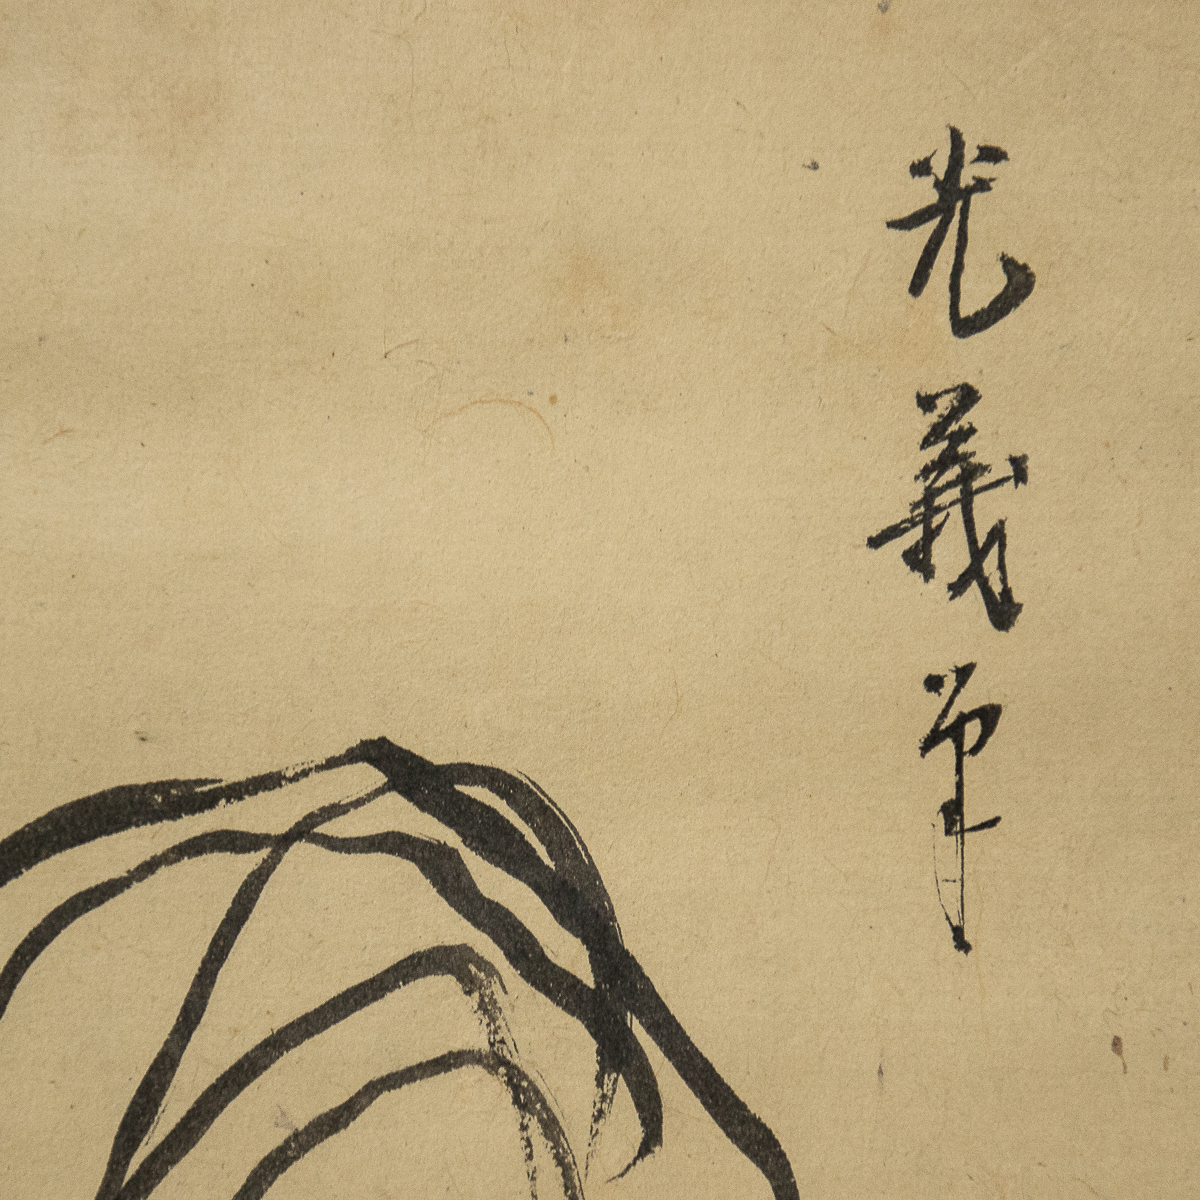 光義筆